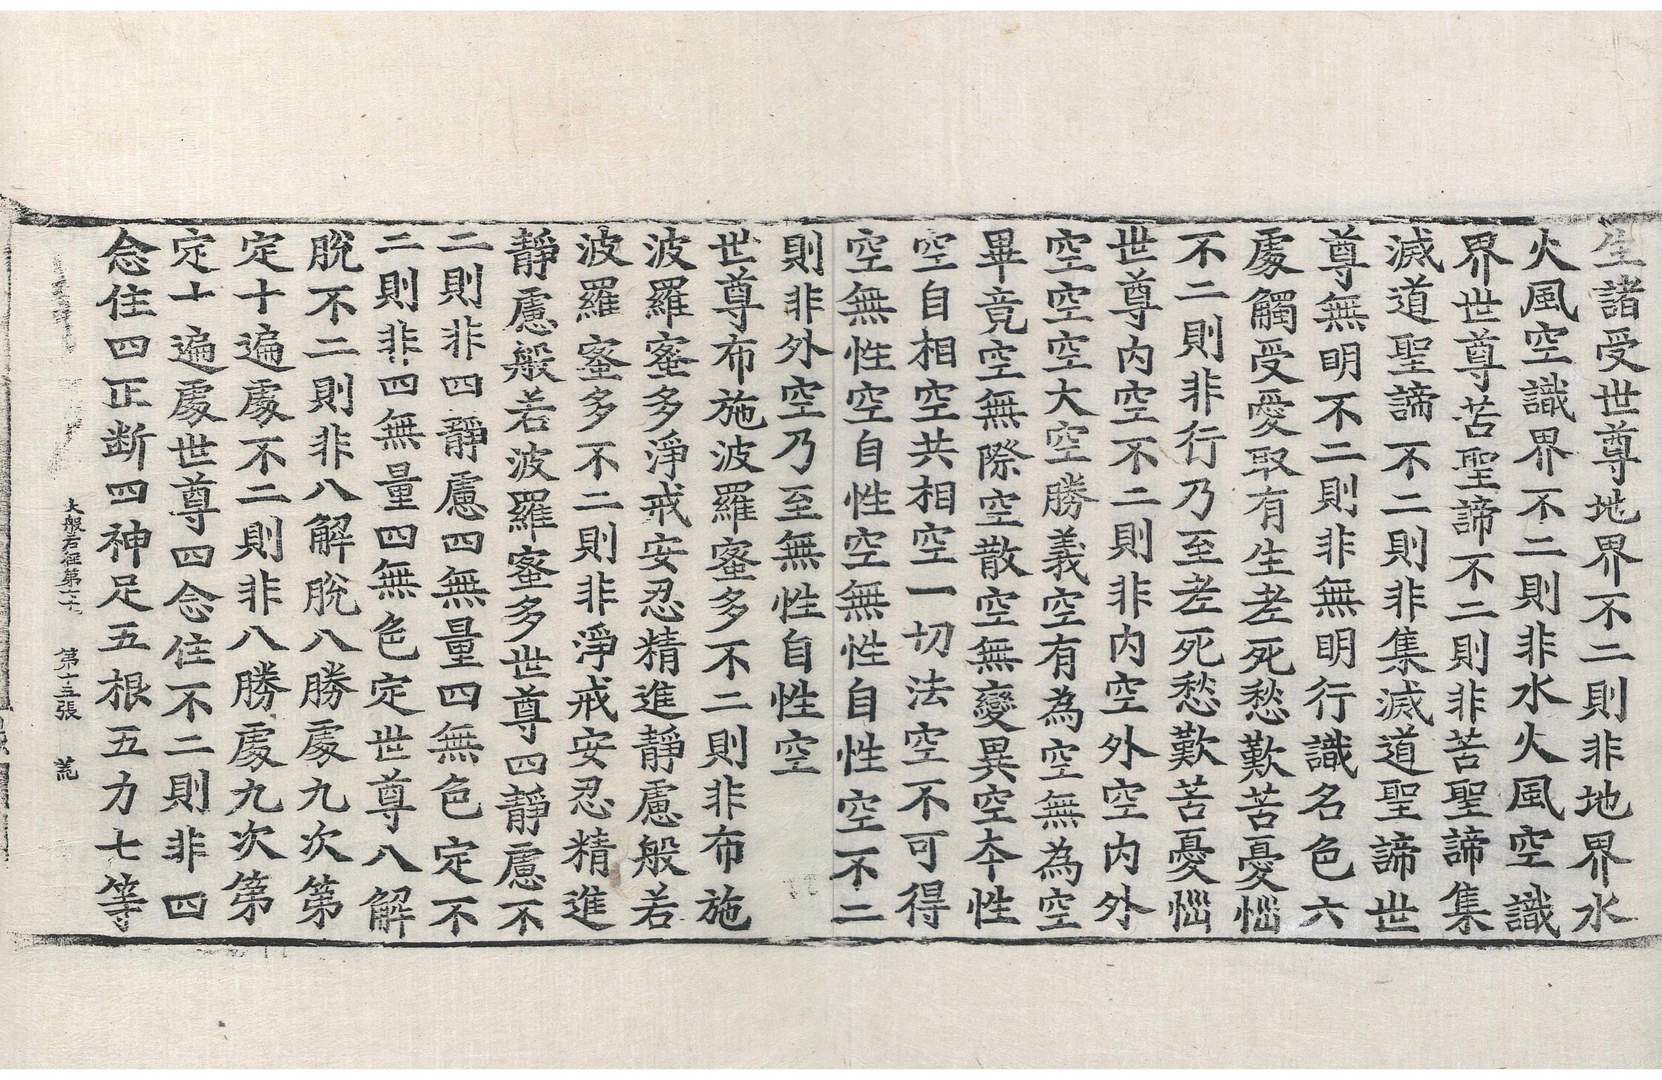 生諸受世尊地界不二則非地界水
火風空識界不二則非水火風空識
界世尊苦聖諦不二則非苦聖諦集
滅道聖諦不二則非集滅道聖諦世
尊無明不二則非無明行識名色六
處觸受愛取有生老死愁歎苦憂惱
不二則非行乃至老死愁歎苦憂惱
世尊内空不二則非内空外空内外
空空空大空勝義空有為空無為空
畢竟空無際空散空無變異空夲性
空自相空共相空一切法空不可得
空無性空自性空無性自性空不二
則非外空乃至無性自性空
世尊布施波羅蜜多不二則非布施
波羅蜜多淨戒安忍精進靜慮般若
波羅蜜多不二則非淨戒安忍精進
靜慮般若波羅蜜多世尊四靜慮不
二則非四靜慮四無量四無色定不
二則非四無量四無色定世尊八解
脫不二則非八解脫八勝處九次第
定十遍處不二則非八勝處九次第
定十遍處世尊四念住不二則非四
念住四正断四神足五根五力七等
大般若經第六十 第十五張 荒